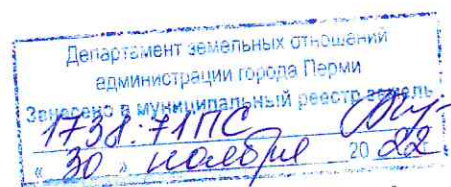 Департамент земельных отношений
администрации города Перми
Занесено в муниципальный реестр земель
1738:71ПС
« 30 » ноября 20 22